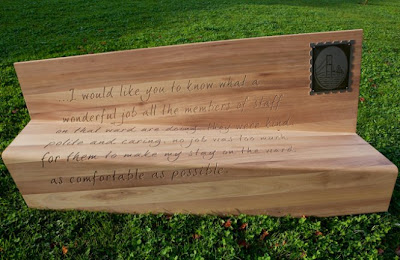 ...I would like you to know what a
wonderful job all the members of staff
on that ward are doing, they were kind,
polite and caring, no job was too much
for them to make my stay on the ward,
as comfortable as possible